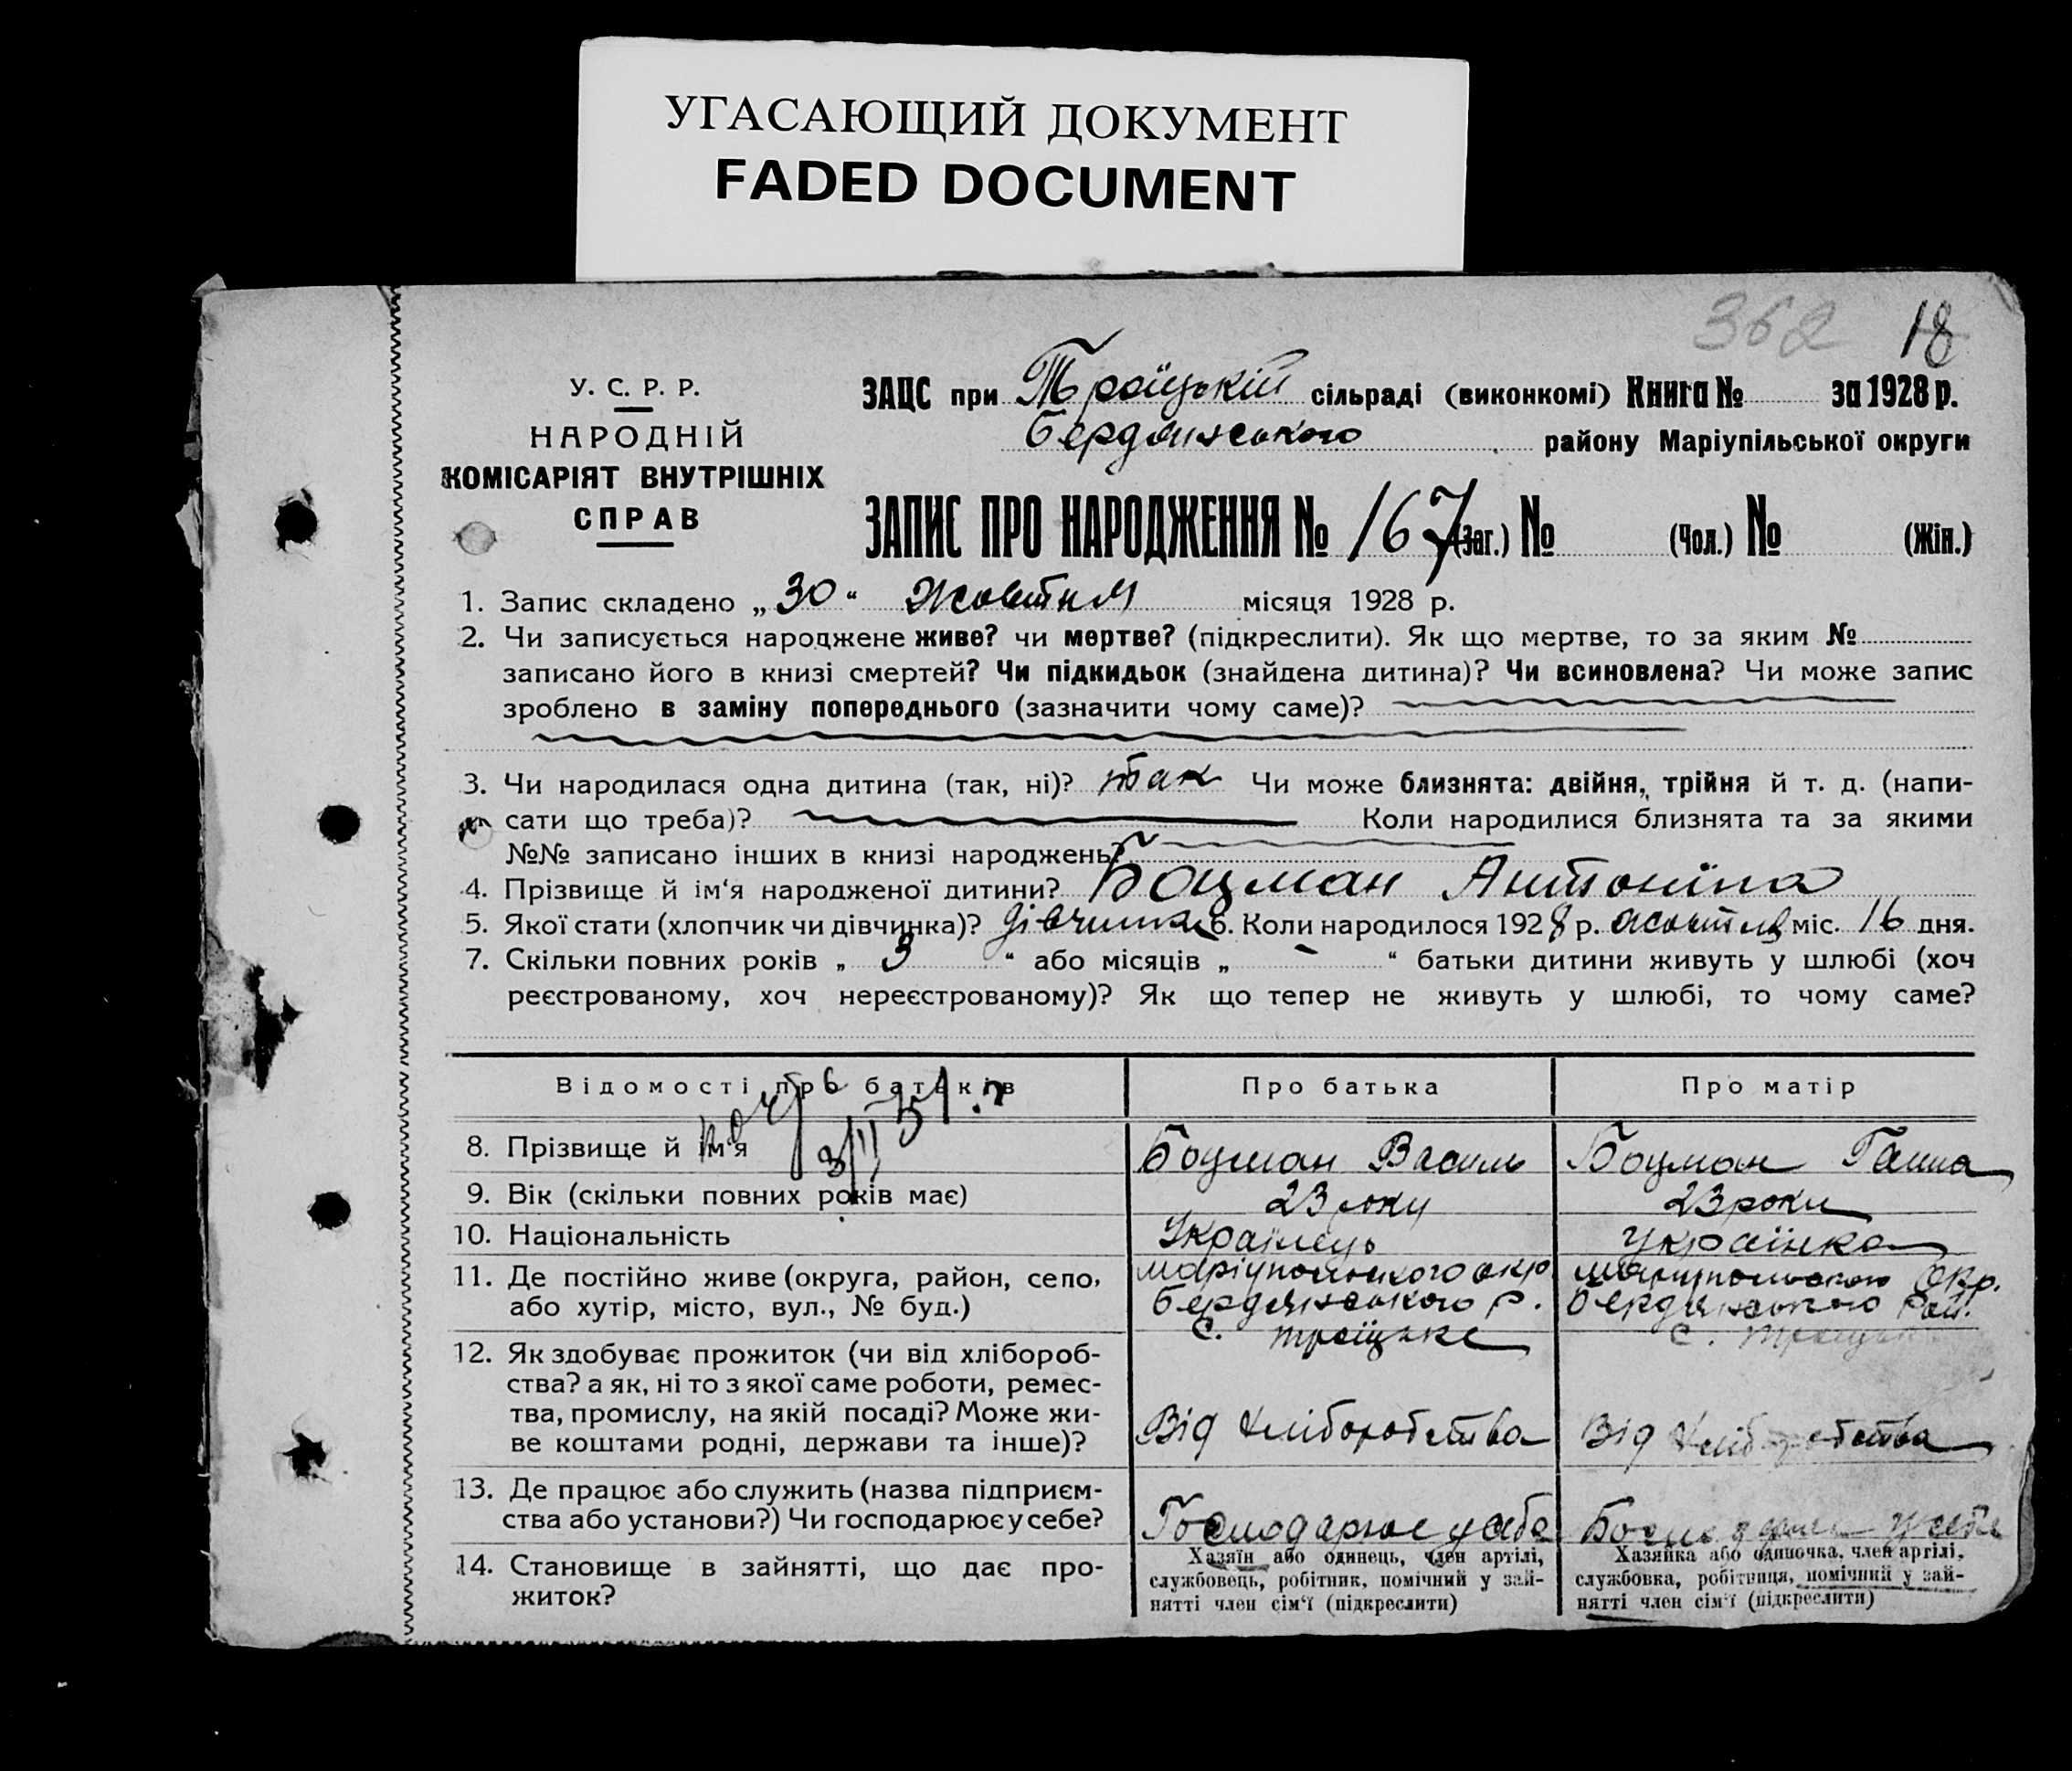 УГАСАЮЩИЙ ДОКУМЕНТ
FADED DOCUMENT
362 18
У. С. Р. Р.
НАРОДНІЙ
КОМІСАРІЯТ ВНУТРІШНІХ
СПРАВ
ЗАЦС при Троїцькій сільраді (виконкомі) Книга № за 1928 р.
Бердянського району Маріупільської округи
ЗАПИС ПРО НАРОДЖЕННЯ № 167 (Заг.) № (Чол.) № (Жін.)
1. Запис складено „30“ Жовтня місяця 1928 р.
2. Чи записується народжене живе? чи мертве? (підкреслити). Як що мертве, то за яким №
записано його в книзі смертей? Чи підкидьок (знайдена дитина)? Чи всиновлена? Чи може запис
зроблено в заміну попереднього (зазначити чому саме)?
3. Чи народилася одна дитина (так, ні)? так Чи може близнята: двійня, трійня й т. д. (напи-
сати що треба)? Коли народилися близнята та за якими
№№ записано інших в книзі народжень?
4. Прізвище й ім‘я народженої дитини? Боцман Антоніна
5. Якої стати (хлопчик чи дівчинка)? дівчинка 6. Коли народилося 1928 р. жовтня міс. 16 дня.
7. Скільки повних років „ 3 “ або місяців „ - “ батьки дитини живуть у шлюбі (хоч
реєстрованому, хоч нереєстрованому)? Як що тепер не живуть у шлюбі, то чому саме?
Відомості про батьків Про батька Про матір
8. Прізвище й ім‘я Боцман Василь Боцман Ганна
9. Вік (скільки повних років має) 23 року 23 роки
10. Національність Українець Українка
11. Де постійно живе (округа, район, село, Маріупольського окр. Маріупольського Окр.
або хутір, місто, вул., № буд.) Бердянського р. Бердянського рай.
с. Троїцьке с. Троїцьке
12. Як здобуває прожиток (чи від хлібороб-
ства? а як, ні то з якої саме роботи, ремес-
тва, промислу, на якій посаді? Може жи-
ве коштами родні, держави та інше)? Від Хліборобства Від Хліборобства
13. Де працює або служить (назва підприєм-
ства або установи?) Чи господарює у себе? Господарює у себе
14. Становище в зайнятті, що дає про-
житок?
Хазяїн або одинець, член артілі,
службовець, робітник, помічний у зай-
нятті член сім‘ї (підкреслити)
Хазяйка або одиночка, член артілі,
службовка, робітниця, помічний у зай-
нятті член сім‘ї (підкреслити)